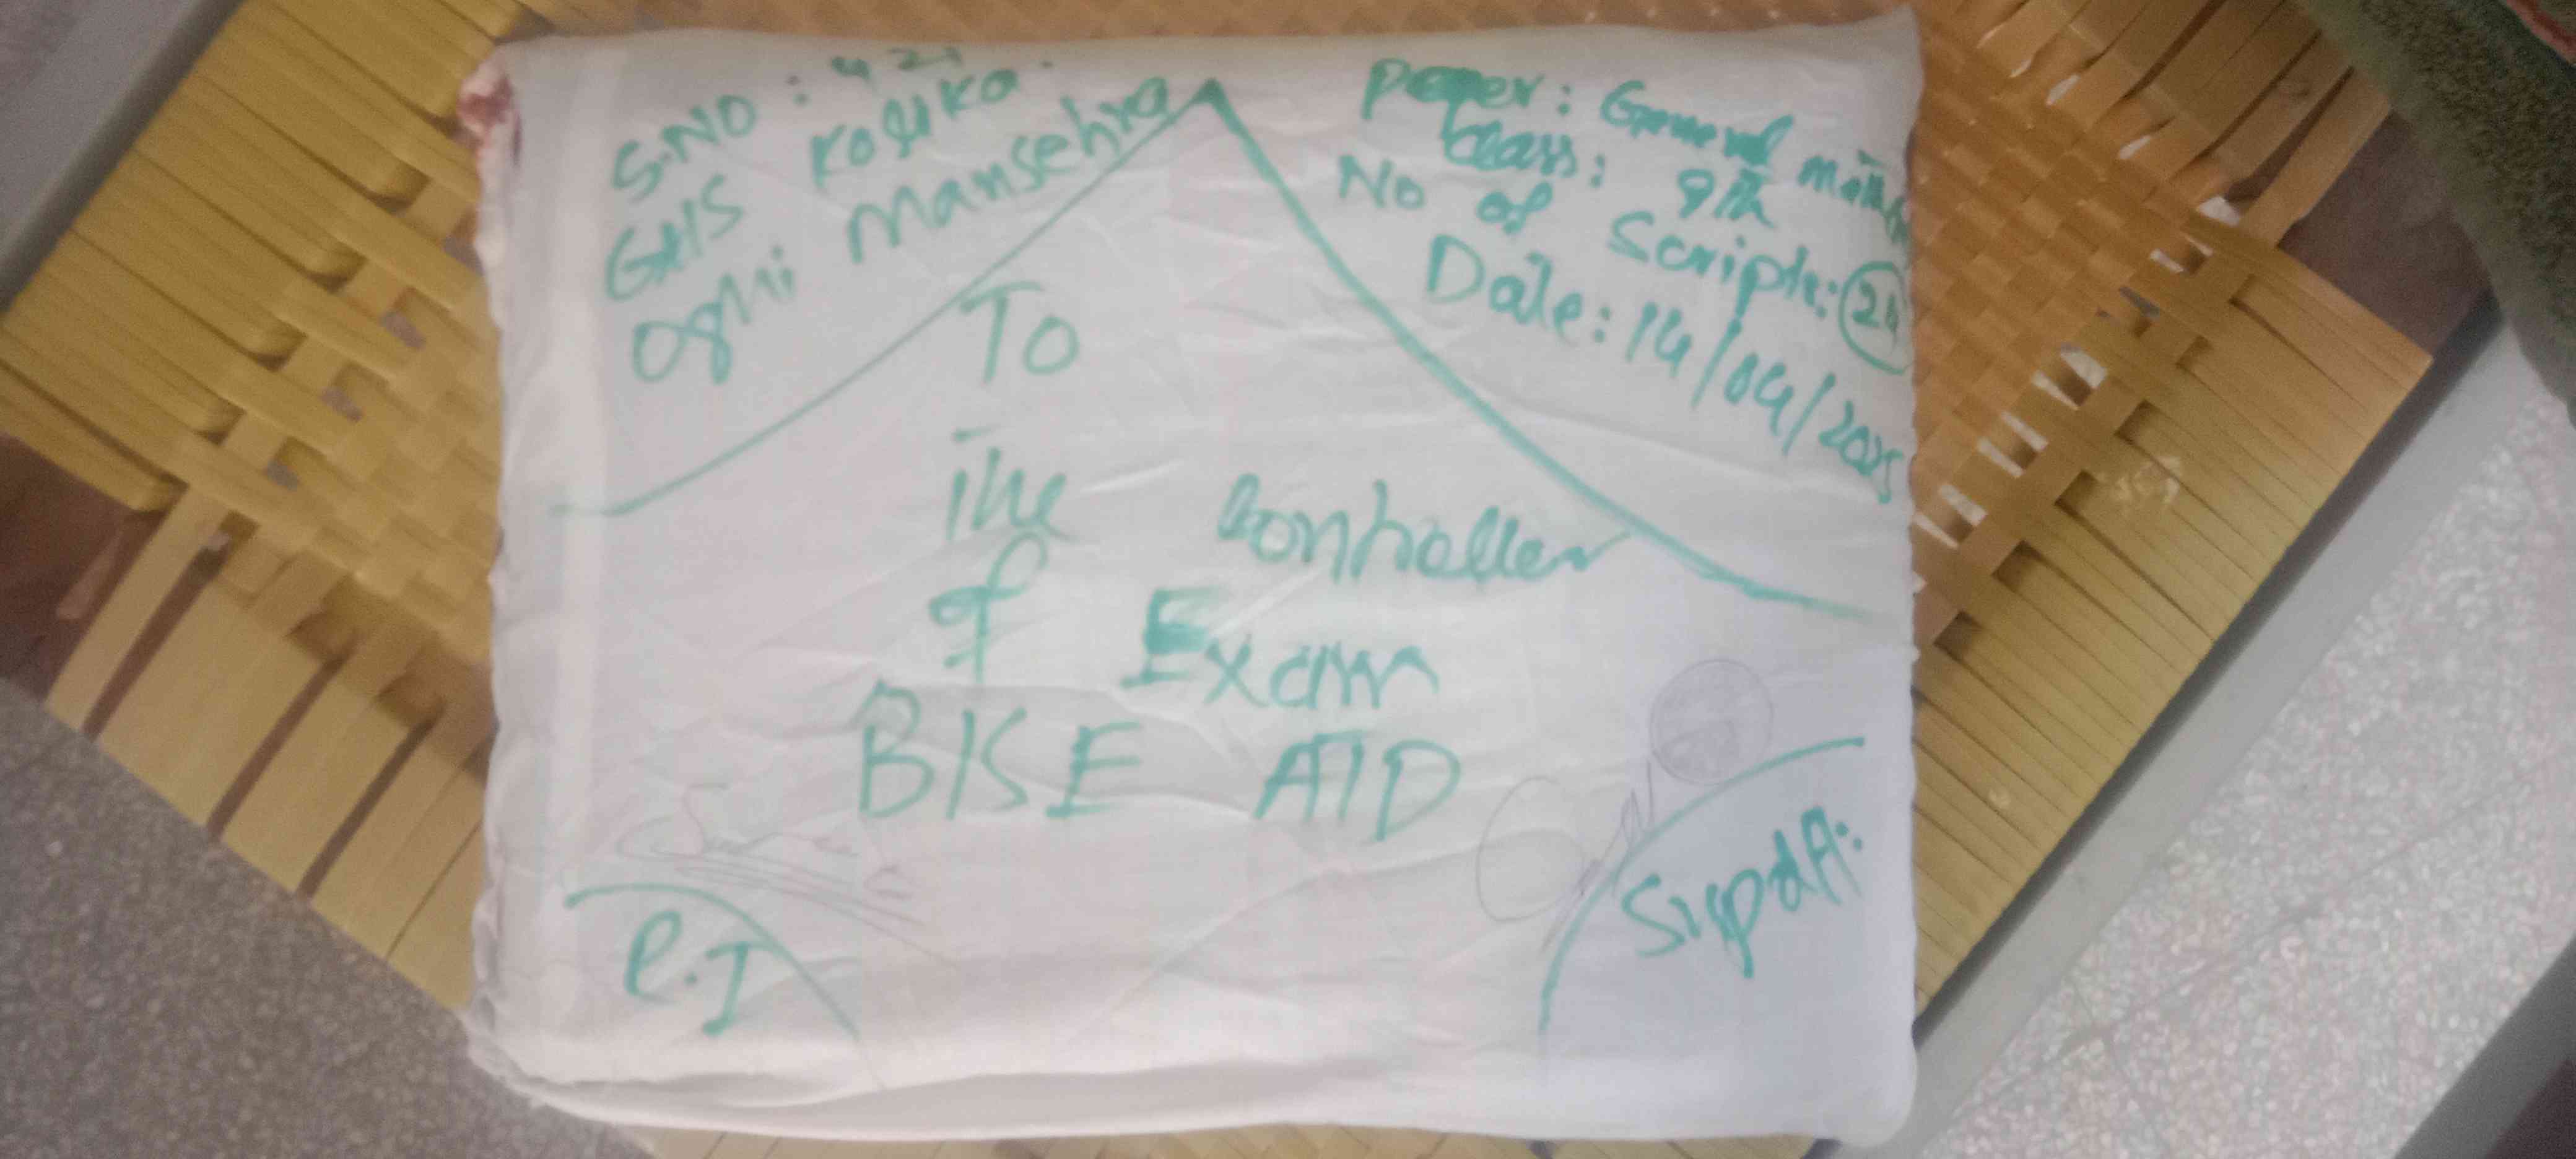 S.NO : 421
GHS
Oghi Mansehra
Paper: General math
Class: 9th
No of Scripts:
Date: 14/04/2025
To
The Controller
of Exam
BISE ATD
P.I
Supdtt: